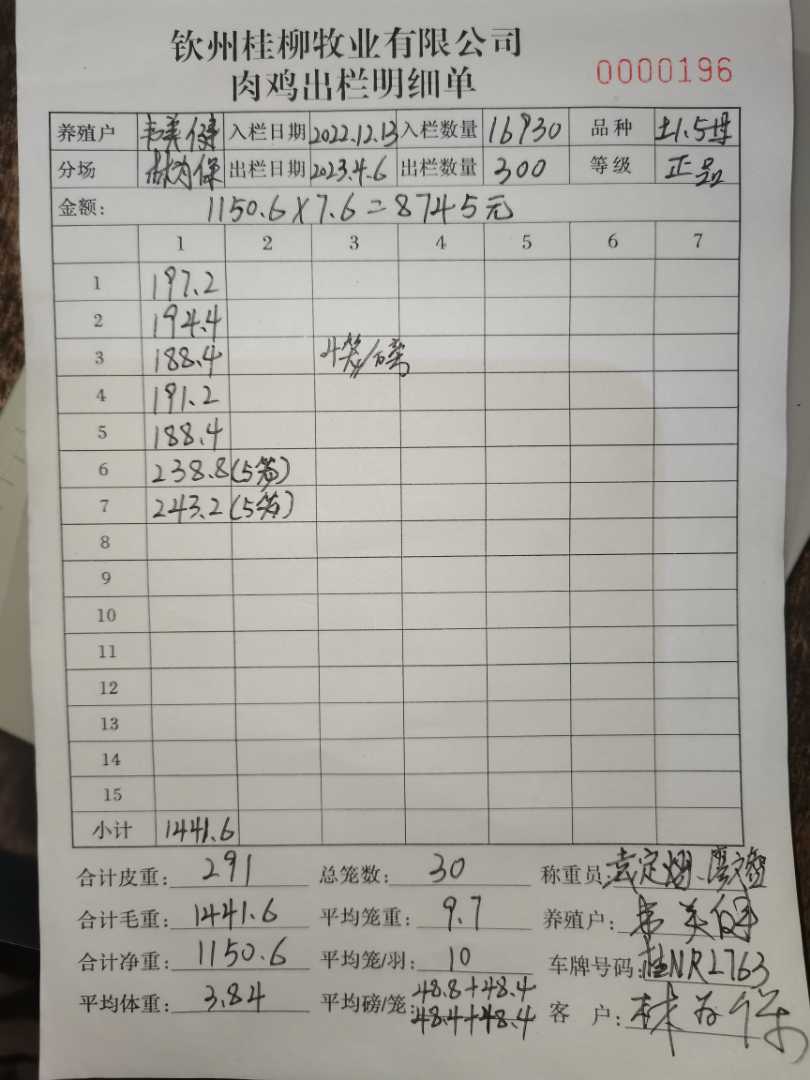 钦州桂柳牧业有限公司
肉鸡出栏明细单
0000196
养殖户 韦美健 入栏日期 2022.12.13 入栏数量 16930 品种 土1.5母
分场 林为保 出栏日期 2023.4.6 出栏数量 300 等级 正品
金额: 1150.6×7.6=8745元
1 2 3 4 5 6 7
1 197.2
2 194.4
3 188.4 4笼/磅
4 191.2
5 188.4
6 238.8(5笼)
7 243.2(5笼)
8
9
10
11
12
13
14
15
小计 1441.6
合计皮重: 291 总笼数: 30 称重员
合计毛重: 1441.6 平均笼重: 9.7 养殖户: 韦美健
合计净重: 1150.6 平均笼/羽: 10 车牌号码: 桂NR2763
平均体重: 3.84 平均磅/笼: 48.8+48.4
48.4+48.4 客户: 林为保